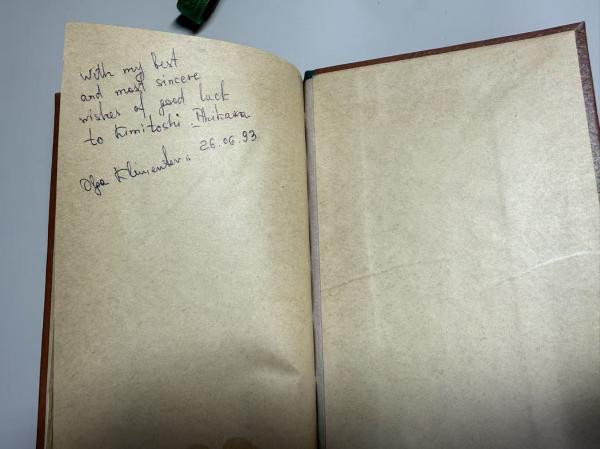 with my best
and most sincere
wishes of good luck
to Kimitoshi
26.06.93
Olga